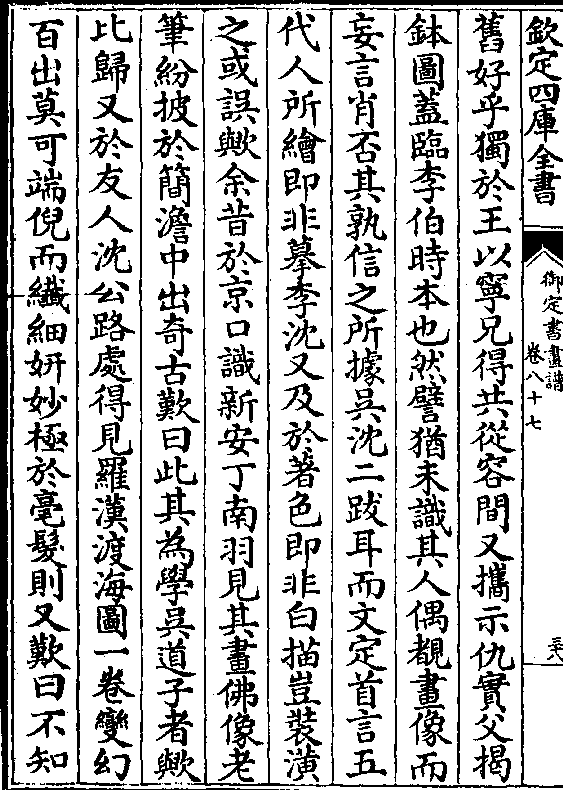 欽定四庫全書
御定書畫譜
卷八十七
三十八
舊好乎獨於王以寧兄得共從容間又攜示仇實父揭
鉢圖蓋臨李伯時本也然譬猶未識其人偶覩畫像而
妄言肖否其孰信之所據吳沈二跋耳而文定首言五
代人所繪即非摹李沈又及於著色即非白描豈裝潢
之或誤歟余昔於京口識新安丁南羽見其畫佛像老
筆紛披於簡澹中出奇古歎曰此其為學吳道子者歟
比歸又於友人沈公路處得見羅漢渡海圖一卷變幻
百出莫可端倪而纖細妍妙極於毫髮則又歎曰不知